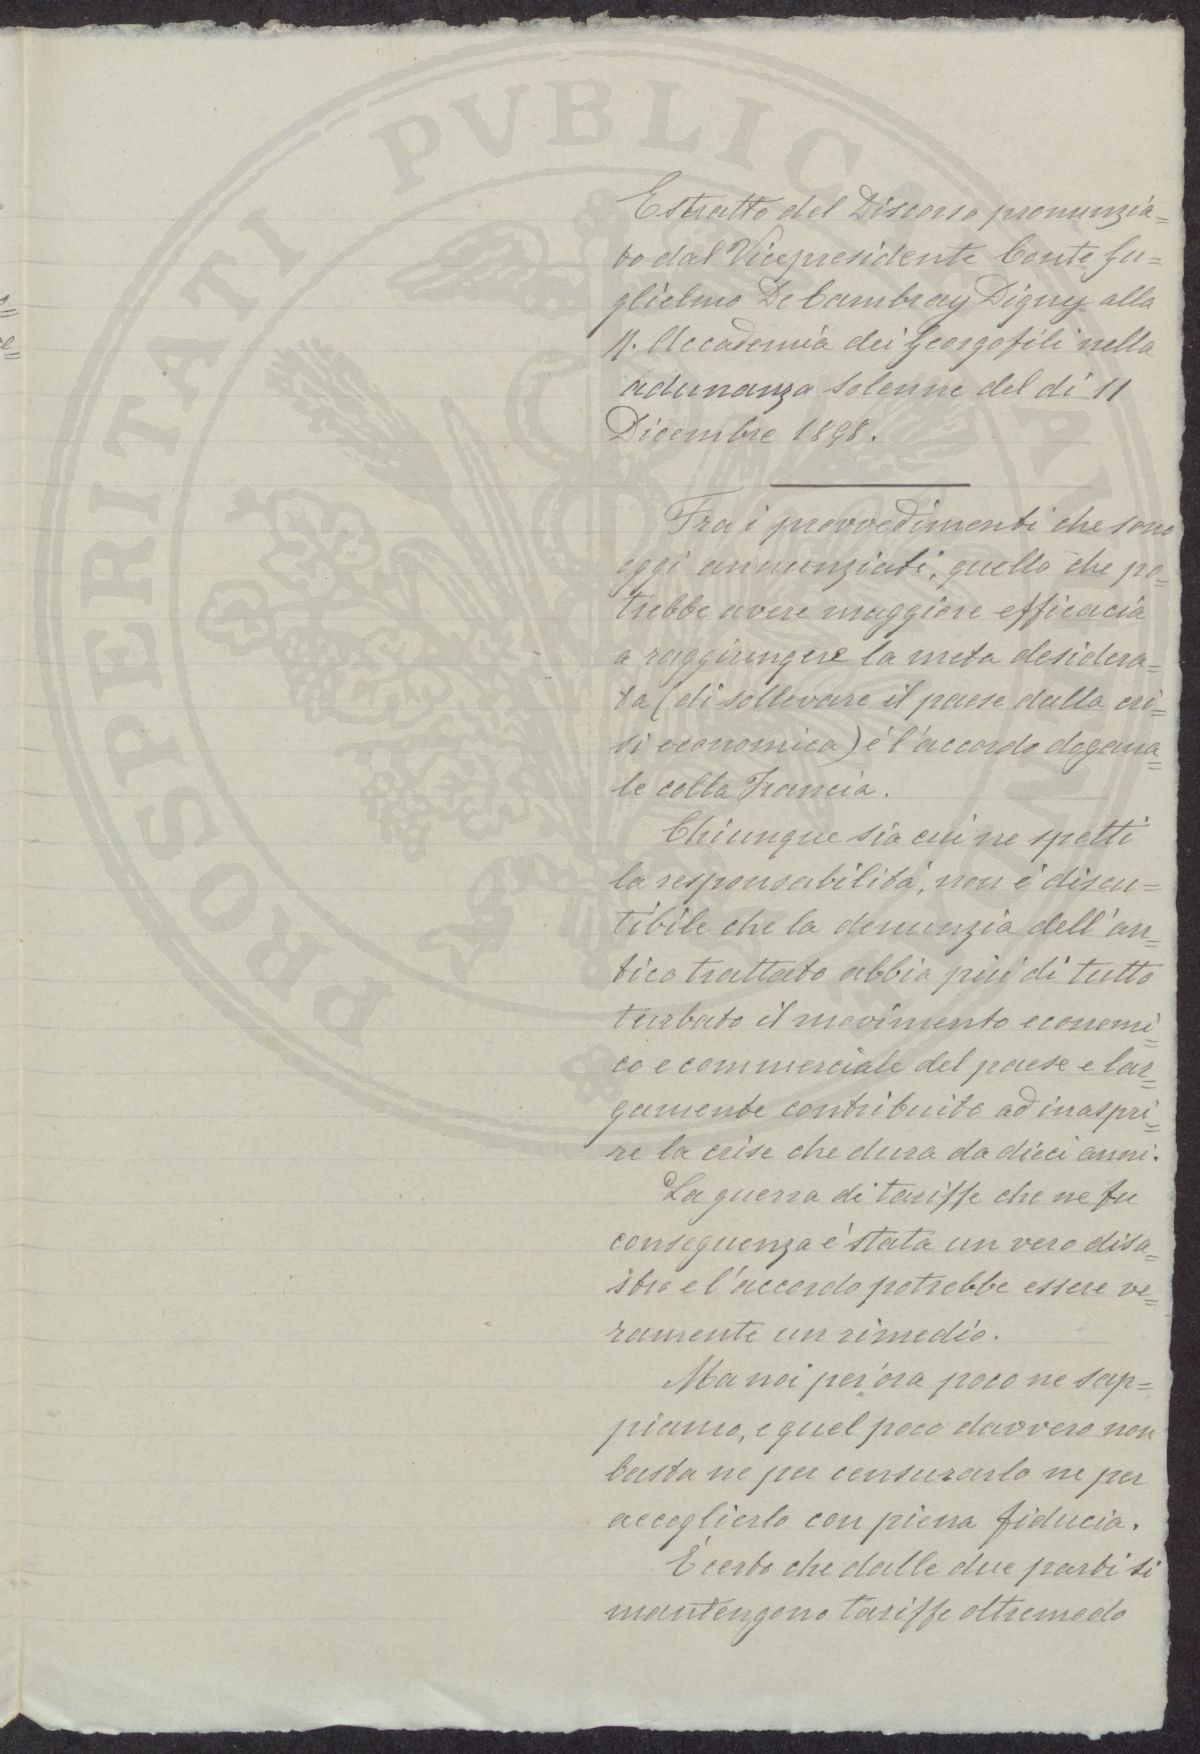 PROSPERITATI PVBLICAE
Estratto del Discorso pronunzia=
to dal Vicepresidente Conte Gu=
glielmo De Cambray Digny alla
R. Accademia dei Georgofili nella
adunanza solenne del di 11
Dicembre 1898.
Fra i provvedimenti che sono
oggi annunziati, quello che po=
trebbe avere maggiore efficacia
a raggiungere la meta desidera=
ta (di sollevare il paese dalla cri=
si economica) é l'accordo dogana=
le colla Francia.
Chiunque sia cui ne spetti
la responsabilitá, non é discu=
tibile che la denunzia dell'an=
tico trattato abbia piú di tutto
turbato il movimento economi=
co e commerciale del paese e lar=
gamente contribuito ad inaspri=
re la crise che dura da dieci anni.
La guerra di tariffe che ne fu
conseguenza é stata un vero disa=
stro e l'accordo potrebbe essere ve=
ramente un rimedio.
Ma noi per'ora poco ne sap=
piamo, e quel poco davvero non
basta ne per censurarlo ne per
accoglierlo con piena fiducia.
É certo che dalle due parti si
mantengono tariffe oltremodo